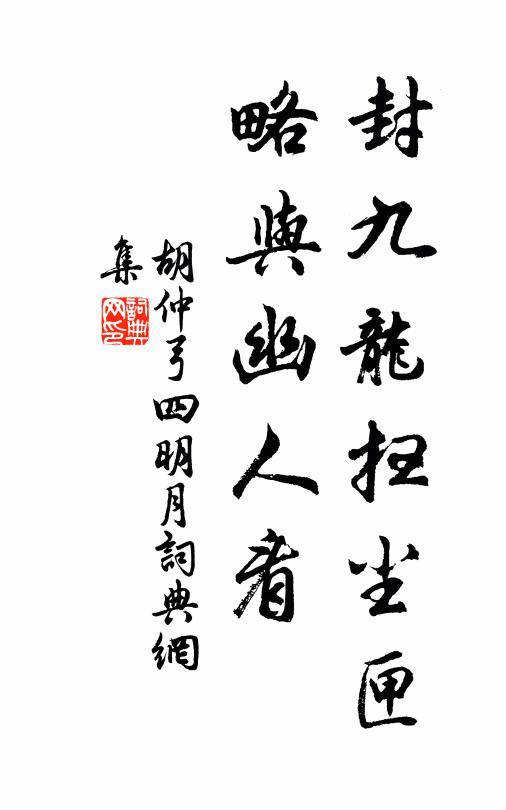 封九龍枉坐匣
略與幽人看
胡仲弓四明月詞典網
集
詞典網印